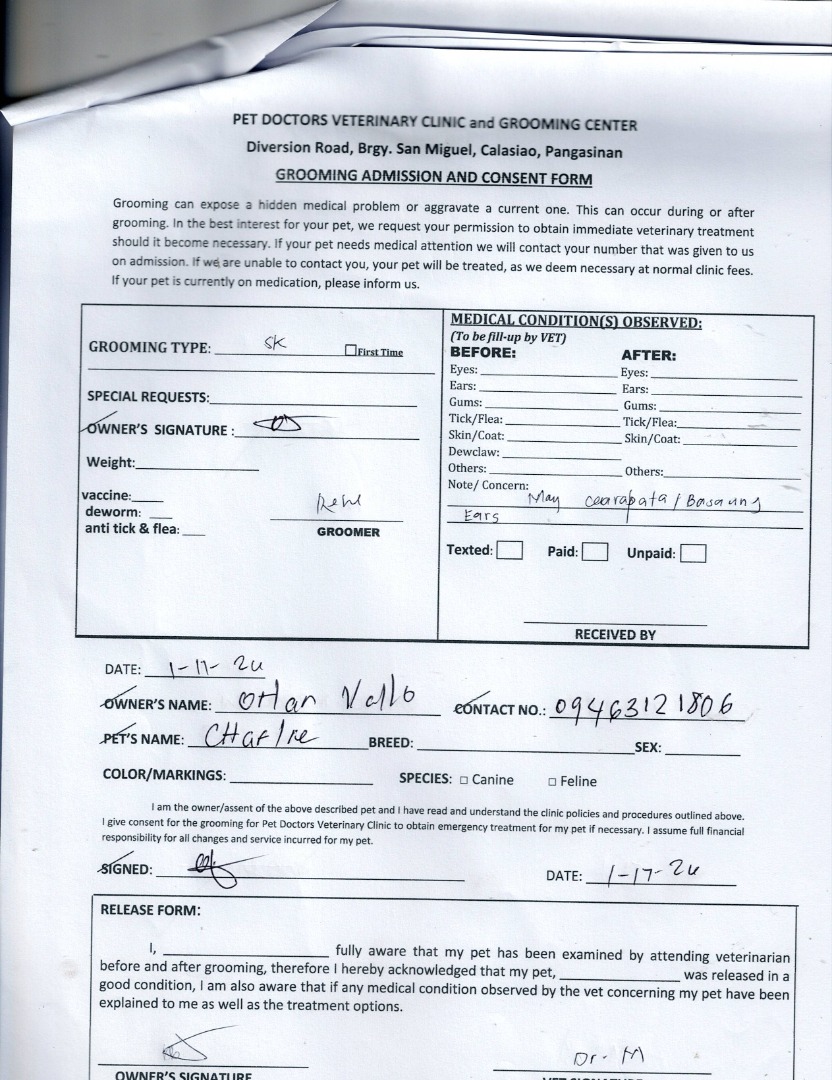 PET DOCTORS VETERINARY CLINIC and GROOMING CENTER
Diversion Road, Brgy. San Miguel, Calasiao, Pangasinan
GROOMING ADMISSION AND CONSENT FORM
Grooming can expose a hidden medical problem or aggravate a current one. This can occur during or after
grooming. In the best interest for your pet, we request your permission to obtain immediate veterinary treatment
should it become necessary. If your pet needs medical attention we will contact your number that was given to us
on admission. If we are unable to contact you, your pet will be treated, as we deem necessary at normal clinic fees.
If your pet is currently on medication, please inform us.
GROOMING TYPE: SK First Time
SPECIAL REQUESTS:
OWNER'S SIGNATURE :
Weight:
vaccine:
deworm:
anti tick & flea:
GROOMER
MEDICAL CONDITION(S) OBSERVED:
(To be fill-up by VET)
BEFORE: AFTER:
Eyes: Eyes:
Ears: Ears:
Gums: Gums:
Tick/Flea: Tick/Flea:
Skin/Coat: Skin/Coat:
Dewclaw:
Others: Others:
Note/ Concern:
May /
Ears
Texted: Paid: Unpaid:
RECEIVED BY
DATE:
OWNER'S NAME: CONTACT NO.: 09463121806
PET'S NAME: BREED: SEX:
COLOR/MARKINGS: SPECIES: Canine Feline
I am the owner/assent of the above described pet and I have read and understand the clinic policies and procedures outlined above.
I give consent for the grooming for Pet Doctors Veterinary Clinic to obtain emergency treatment for my pet if necessary. I assume full financial
responsibility for all changes and service incurred for my pet.
SIGNED: DATE: 1-17-24
RELEASE FORM:
I, fully aware that my pet has been examined by attending veterinarian
before and after grooming, therefore I hereby acknowledged that my pet, was released in a
good condition, I am also aware that if any medical condition observed by the vet concerning my pet have been
explained to me as well as the treatment options.
Dr. M
OWNER'S SIGNATURE